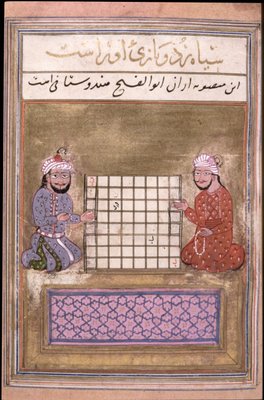 سیاه برد و بازی اوراست
این منصوبه ازان ابوالفتح هندوستانی است